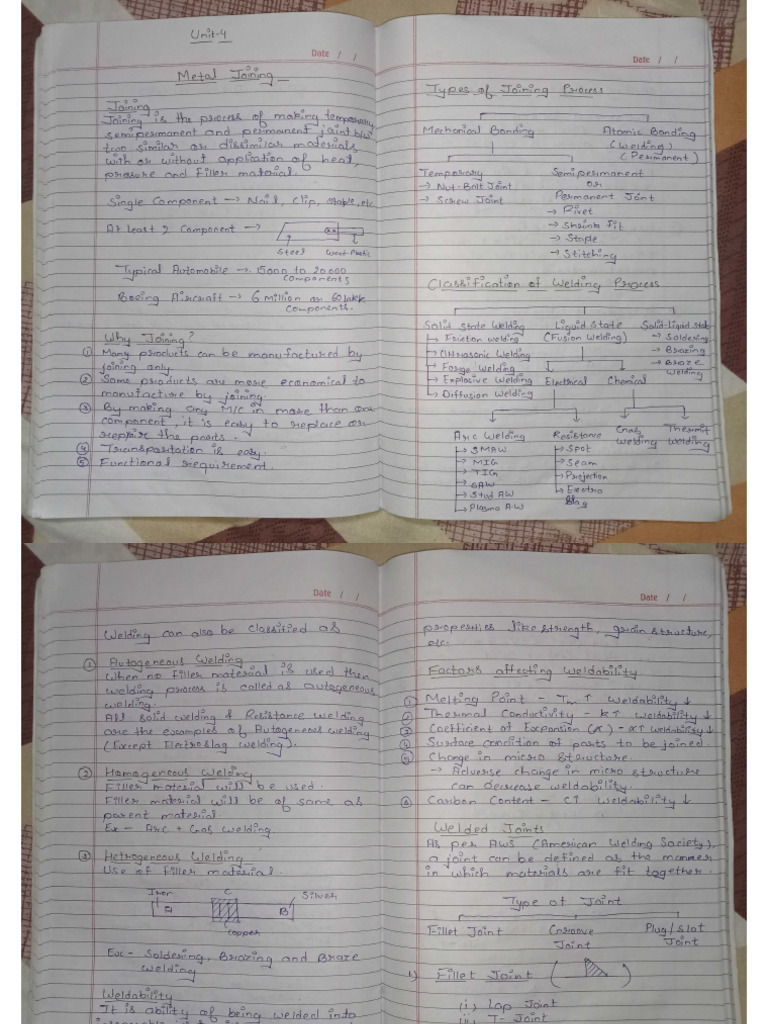 Unit-4
Date / /
Metal Joining
Joining
Joining is the process of making temporary
semipermanent and permanent joint b/w
two similar or dissimilar materials
with or without application of heat,
pressure and filler material.
Single Component → Nail, Clip, Staple, etc
At Least 2 Component →
Steel
Typical Automobile → 15000 to 20000
components
Boeing Aircraft → 6 million or 60 lakh
components.
Why Joining?
① Many products can be manufactured by
joining only
② Some products are more economical to
manufacture by joining.
③ By making any M/C in more than one
component, it is easy to replace or
reppire the parts.
④ Transportation is easy.
⑤ Functional requirement.
Date / /
Types of Joining Process
Mechanical Bonding
Atomic Bonding
(Welding)
(Permanent)
Temporary
→ Nut-Bolt Joint
→ Screw Joint
Semipermanent
or
Permanent Joint
→ Rivet
→ Shrink fit
→ Staple
→ Stitching
Classification of Welding Process
Solid State Welding
→ Friction welding
→ Ultrasonic Welding
→ Forge Welding
→ Explosive Welding
→ Diffusion Welding
Liquid State
(Fusion Welding)
Solid-Liquid state
→ Soldering
→ Brazing
→ Braze
welding
Electrical
Chemical
Arc Welding
→ SMAW
→ MIG
→ TIG
→ SAW
→ Stud AW
→ Plasma AW
Resistance
→ Spot
→ Seam
→ Projection
→ Electro
Slag
Gas
Welding
Thermit
Welding
Date / /
Welding can also be Classified as
① Autogeneous Welding
When no filler material is used then
welding process is called as autogeneous
welding.
All solid welding & Resistance welding
are the examples of Autogeneous welding
(Except Electroslag Welding).
② Homogeneous Welding
Filler material will be used.
Filler material will be of same as
parent material.
Ex- Arc + Gas Welding
③ Hetrogeneous Welding
Use of filler material.
Iron
C
Silver
A
B
Copper
Ex- Soldering, Brazing and Braze
Welding
Weldability
It is ability of being welded into
Date / /
properties like strength, grain structure,
etc.
Factors affecting Weldability
① Melting Point - Tm ↑ Weldability ↓
② Thermal Conductivity - k↑ weldability ↓
③ Coefficient of Expantion (α) - α↑ weldability ↓
④ Surface condition of parts to be joined.
⑤ Change in micro Structure.
→ Adverse change in micro structure
can decrease weldability.
⑥ Carbon Content - C↑ weldability ↓
Welded Joints
As per AWS (American Welding Society),
a joint can be defined as the manner
in which materials are fit together.
Type of Joint
Fillet Joint
Joint
Plug/Slot
Joint
1) Fillet Joint
(i) Lap Joint
(ii) T-Joint